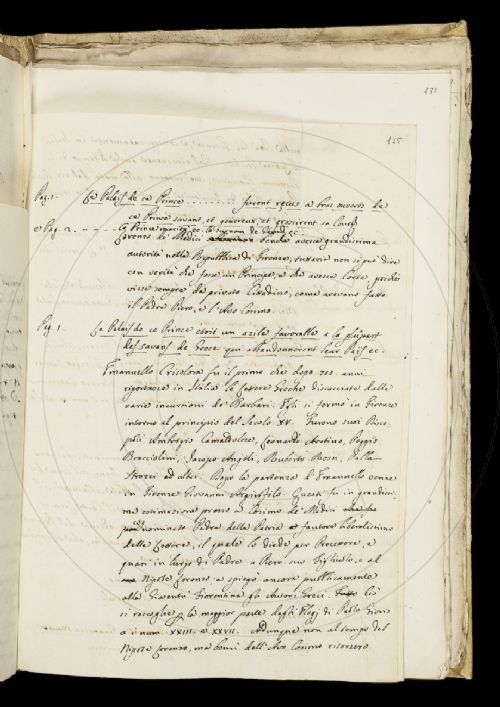 131
125
Pag. 1. Le Palais de ce Prince . . . . . . . . . furent reçus a bras ouverts de
ce Prince savant, et genereux, et grossirent sa Cour;
e Pag. 2. - - - - - le Prince
Lorenzo de' Medici benchè avesse grandissima
autorità nella Repubblica di Firenze, tuttavia non si può dire
con verità che fosse un Principe, e che avesse Corte, poichè
visse sempre da privato Cittadino, come avevano fatto
il Padre Piero, e l'Avo Cosimo.
Pag. 1. Le Palais de ce Prince etoit un azile favorable a la plupart
des savans de Grece qui abandonnoient leur Païs ec.
Emanuello Crisolora fu il primo che dopo 700. anni
riportasse in Italia le Lettere Greche discacciate dalle
varie incursioni de' Barbari. Egli si fermò in Firenze
intorno al principio del Secolo XV. Furono suoi Disce-
poli Ambrogio Camaldolese, Leonardo Aretino, Poggio
Bracciolini, Jacopo Angeli, Ruberto Rossi, Palla
Strozzi ed altri. Dopo la partenza d'Emanuello venne
in Firenze Giovanni Argiropilo. Questi fu in grandissi-
ma estimazione presso a Cosimo de' Medici
nominato Padre della Patria e fautore liberalissimo
delle Lettere, il quale lo diede per Precettore, e
quasi in luogo di Padre a Piero suo Figliuolo, e al
Nipote Lorenzo: e spiegò ancora pubblicamente
alla Gioventù Fiorentina gli Autori Greci. Ciò
si raccoglie per la maggior parte dagli Elogj di Paolo Giovio
a i num. XXIII. e XXVII. Adunque non al tempo del
Nipote Lorenzo, ma bensì dell'Avo Cosimo